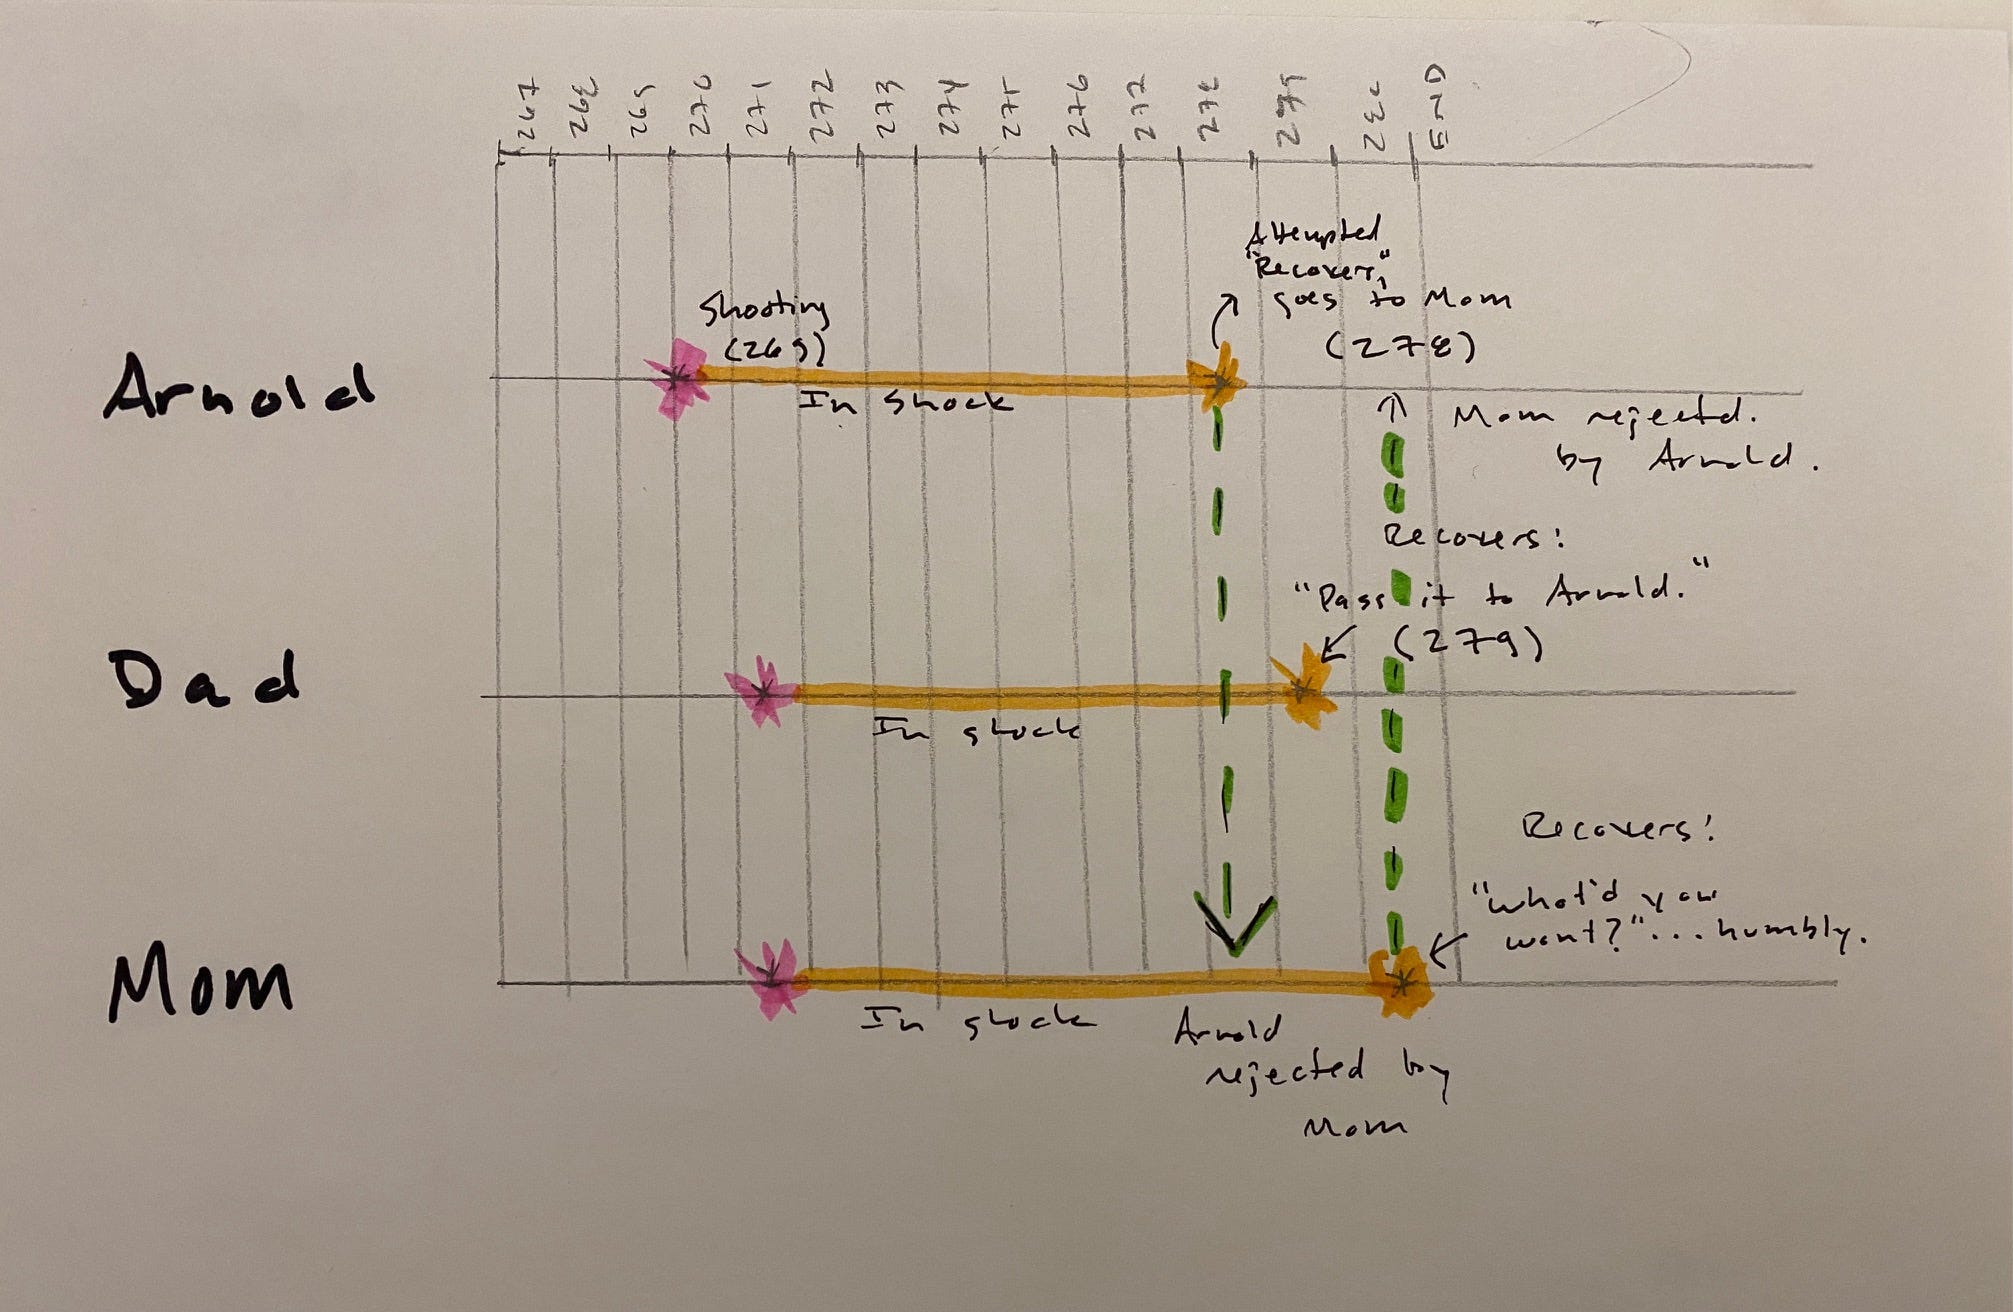 267 268 269 270 271 272 273 274 275 276 277 278 279 280 END
Attempted
"Recovers,"
goes to Mom
(278)
Shooting
(269)
Arnold
In Shock
Mom rejected.
by Arnold.
Recovers:
"Pass it to Arnold."
(279)
Dad
In shock
Recovers:
"What'd you
want?"...humbly.
Mom
In shock
Arnold
rejected by
Mom